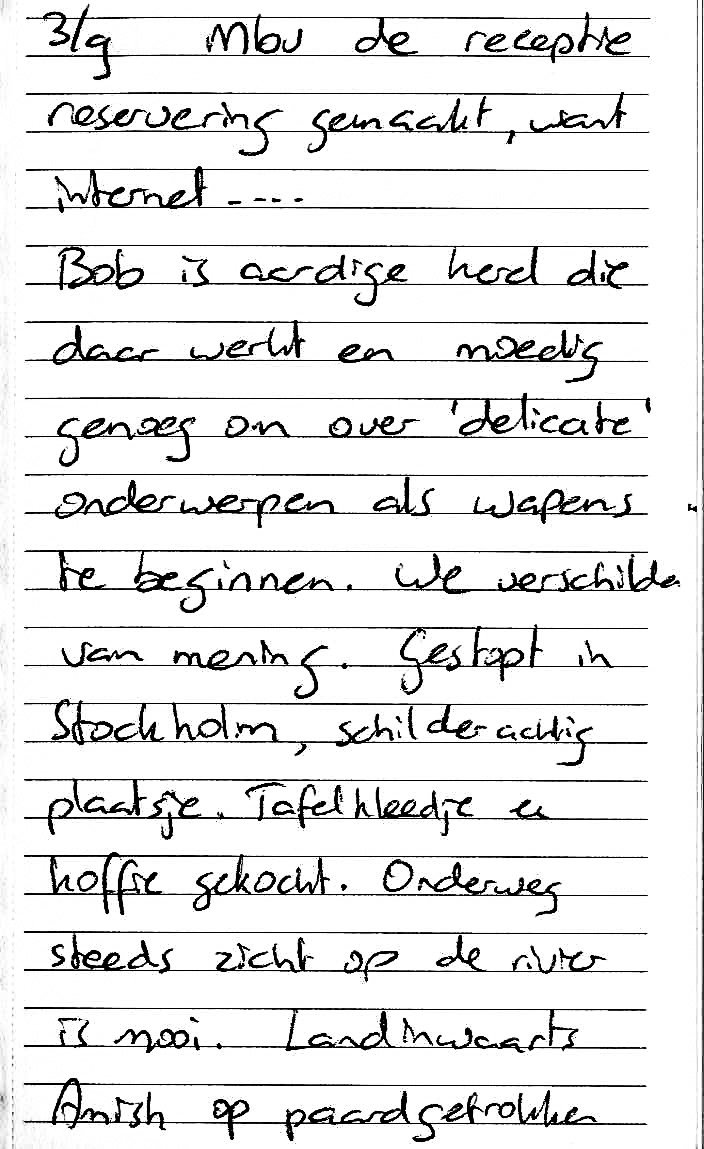 3/9 Mbv de receptie
reservering gemaakt, want
internet ----
Bob is aardige kerel die
daar werkt en moedig
genoeg om over 'delicate'
onderwerpen als wapens
te beginnen. We verschilden
van mening. Gestopt in
Stockholm, schilderachtig
plaatsje. Tafelkleedje en
koffie gekocht. Onderweg
steeds zicht op de rivier
is mooi. Landinwaarts
Amish op paardgetrokken